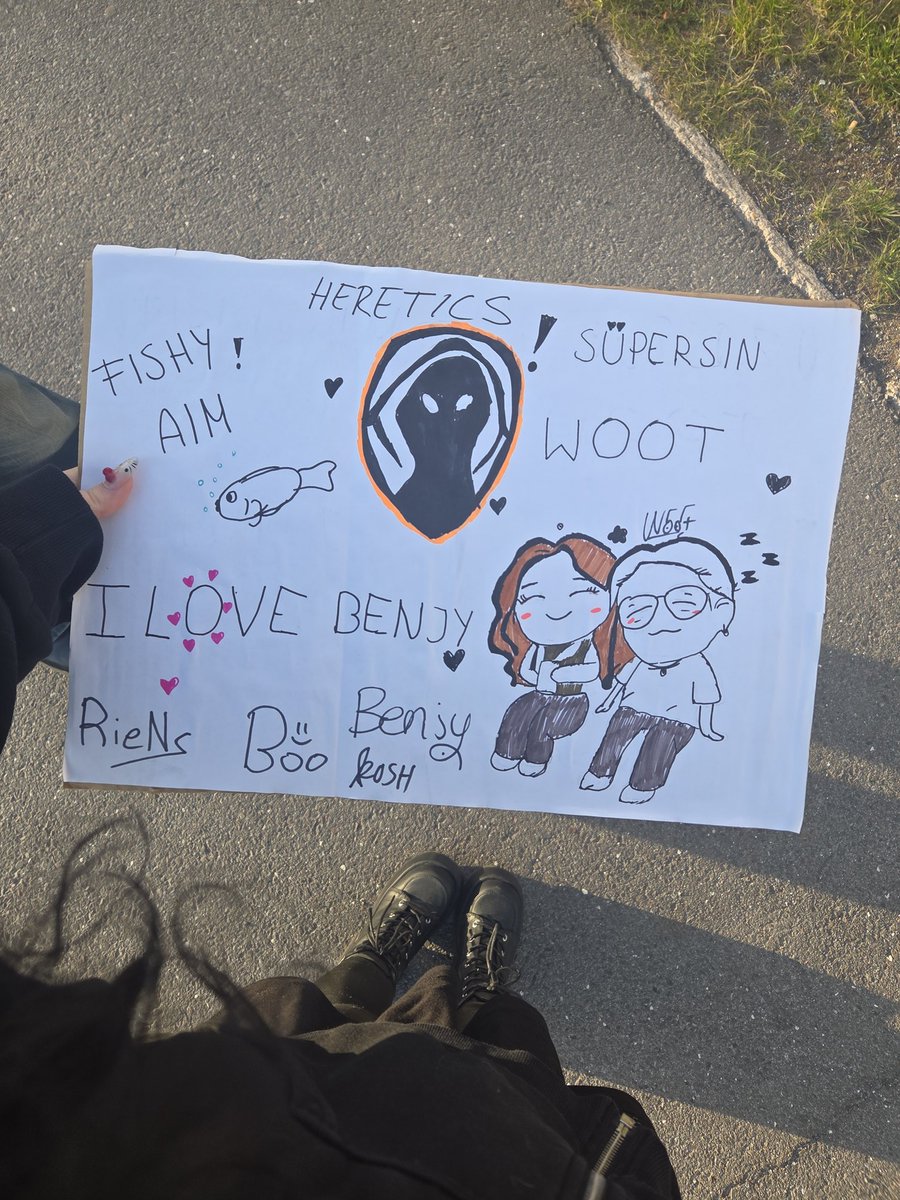 HERETICS
!
FISHY!
AIM
SÜPERSIN
WOOT
Woot
z z z
I LOVE BENJY
RieNs
Boo
Benjy
ROSH